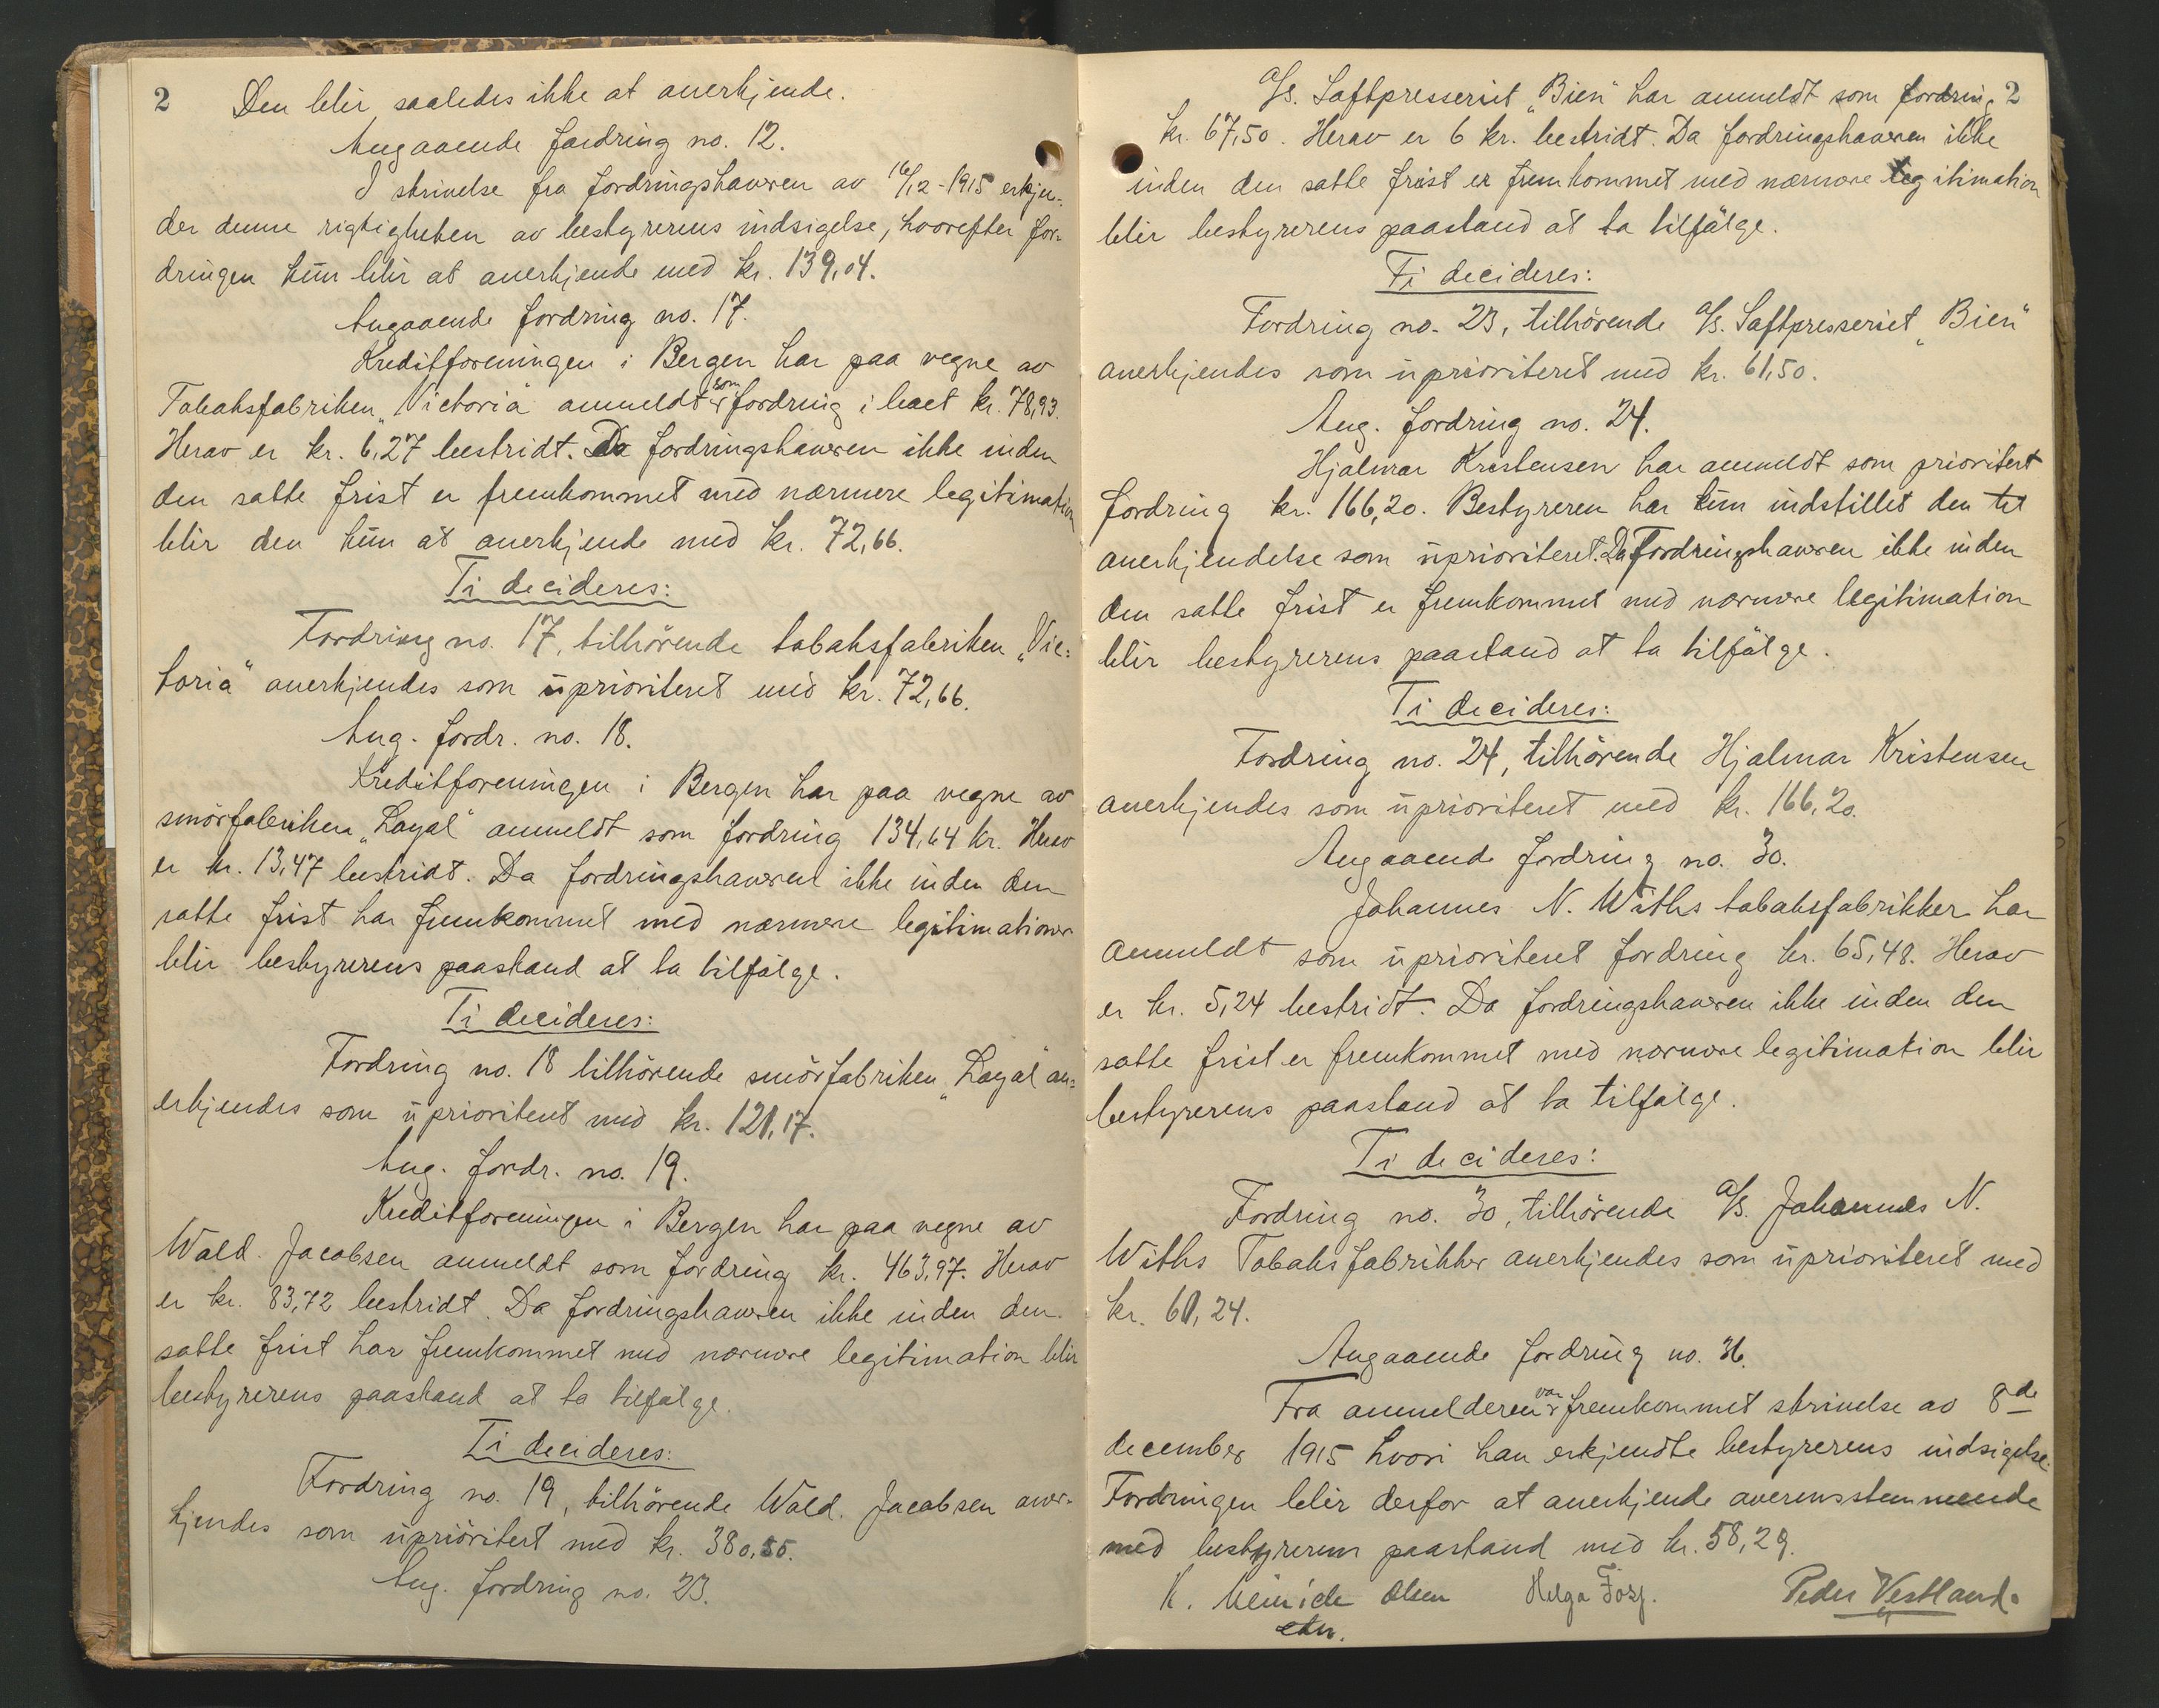 2 Den blir saaledes ikke at anerkjende.
Angaaende fordring no. 12.
I skrivelse fra fordringshaveren av 16/12-1915 erkjen-
der denne rigtigheten av bestyrerens indsigelse, hvorefter for-
dringen kun blir at anerkjende med kr. 139,04.
Angaaende fordring no. 17.
Kreditforeningen i Bergen har paa vegne av
Tobaksfabriken „Victoria" anmeldt som fordring i boet kr. 78,93.
Herav er kr. 6,27 bestridt. Da fordringshaveren ikke inden
den satte frist er fremkommet med nærmere legitimation
blir den kun at anerkjende med kr. 72,66.
Ti decideres:
Fordring no. 17, tilhörende tobaksfabriken „Vic-
toria" anerkjendes som uprioritert med kr. 72,66.
Ang. fordr. no. 18.
Kreditforeningen i Bergen har paa vegne av
smörfabriken „Loyal" anmeldt som fordring 134,64 kr. Herav
er kr. 13,47 bestridt. Da fordringshaveren ikke inden den
satte frist har fremkommet med nærmere legitimationer
blir bestyrerens paastand at ta tilfölge.
Ti decideres:
Fordring no. 18 tilhörende smörfabriken „Loyal" an-
erkjendes som uprioritert med kr. 121,17.
Ang. fordr. no. 19.
Kreditforeningen i Bergen har paa vegne av
Wald. Jacobsen anmeldt som fordring kr. 463,97. Herav
er kr. 83,72 bestridt. Da fordringshaveren ikke inden den
satte frist har fremkommet med nærmere legitimation blir
bestyrerens paastand at ta tilfölge.
Ti decideres:
Fordring no. 19, tilhörende Wald. Jacobsen aner-
kjendes som uprioritert med kr. 380,55.
Ang. fordring no. 23.
A/S. Saftpresseriet „Bien" har anmeldt som fordring 2
kr. 67,50. Herav er 6 kr. bestridt. Da fordringshaveren ikke
inden den satte frist er fremkommet med nærmere legitimation
blir bestyrerens paastand at ta tilfölge.
Ti decideres:
Fordring no. 23, tilhörende A/S. Saftpresseriet „Bien"
anerkjendes som uprioriteret med kr. 61,50.
Ang. fordring no. 24.
Hjalmar Kristensen har anmeldt som prioritert
fordring kr. 166,20. Bestyreren har kun indstillet den til
anerkjendelse som uprioriteret. Da Fordringshaveren ikke inden
den satte frist er fremkommet med nærmere legitimation
blir bestyrerens paastand at ta tilfölge.
Ti decideres:
Fordring no. 24, tilhörende Hjalmar Kristensen
anerkjendes som uprioriteret med kr. 166,20.
Angaaende fordring no. 30.
Johannes N. Withs tobaksfabrikker har
anmeldt som uprioritert fordring kr. 65,48. Herav
er kr. 5,24 bestridt. Da fordringshaveren ikke inden den
satte frist er fremkommet med nærmere legitimation blir
bestyrerens paastand at ta tilfölge.
Ti decideres:
Fordring no. 30, tilhörende A/S. Johannes N.
Withs Tobaksfabrikker anerkjendes som uprioriteret med
kr. 60,24.
Angaaende fordring no. 36.
Fra anmelderen var fremkommet skrivelse av 8de
december 1915 hvori han erkjendte bestyrerens indsigelse.
Fordringen blir derfor at anerkjende overensstemmende
med bestyrerens paastand med kr. 58,29.
K. Meinich Olsen Helga Fosz. Peder Vestland.